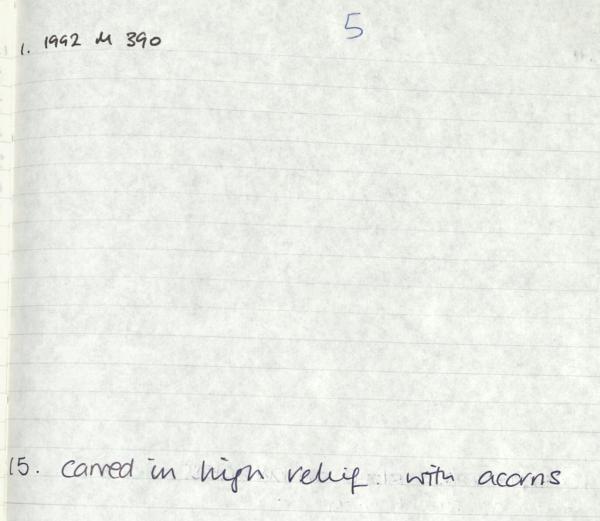 5
1. 1992 M 390
15. carved in high relief. with acorns